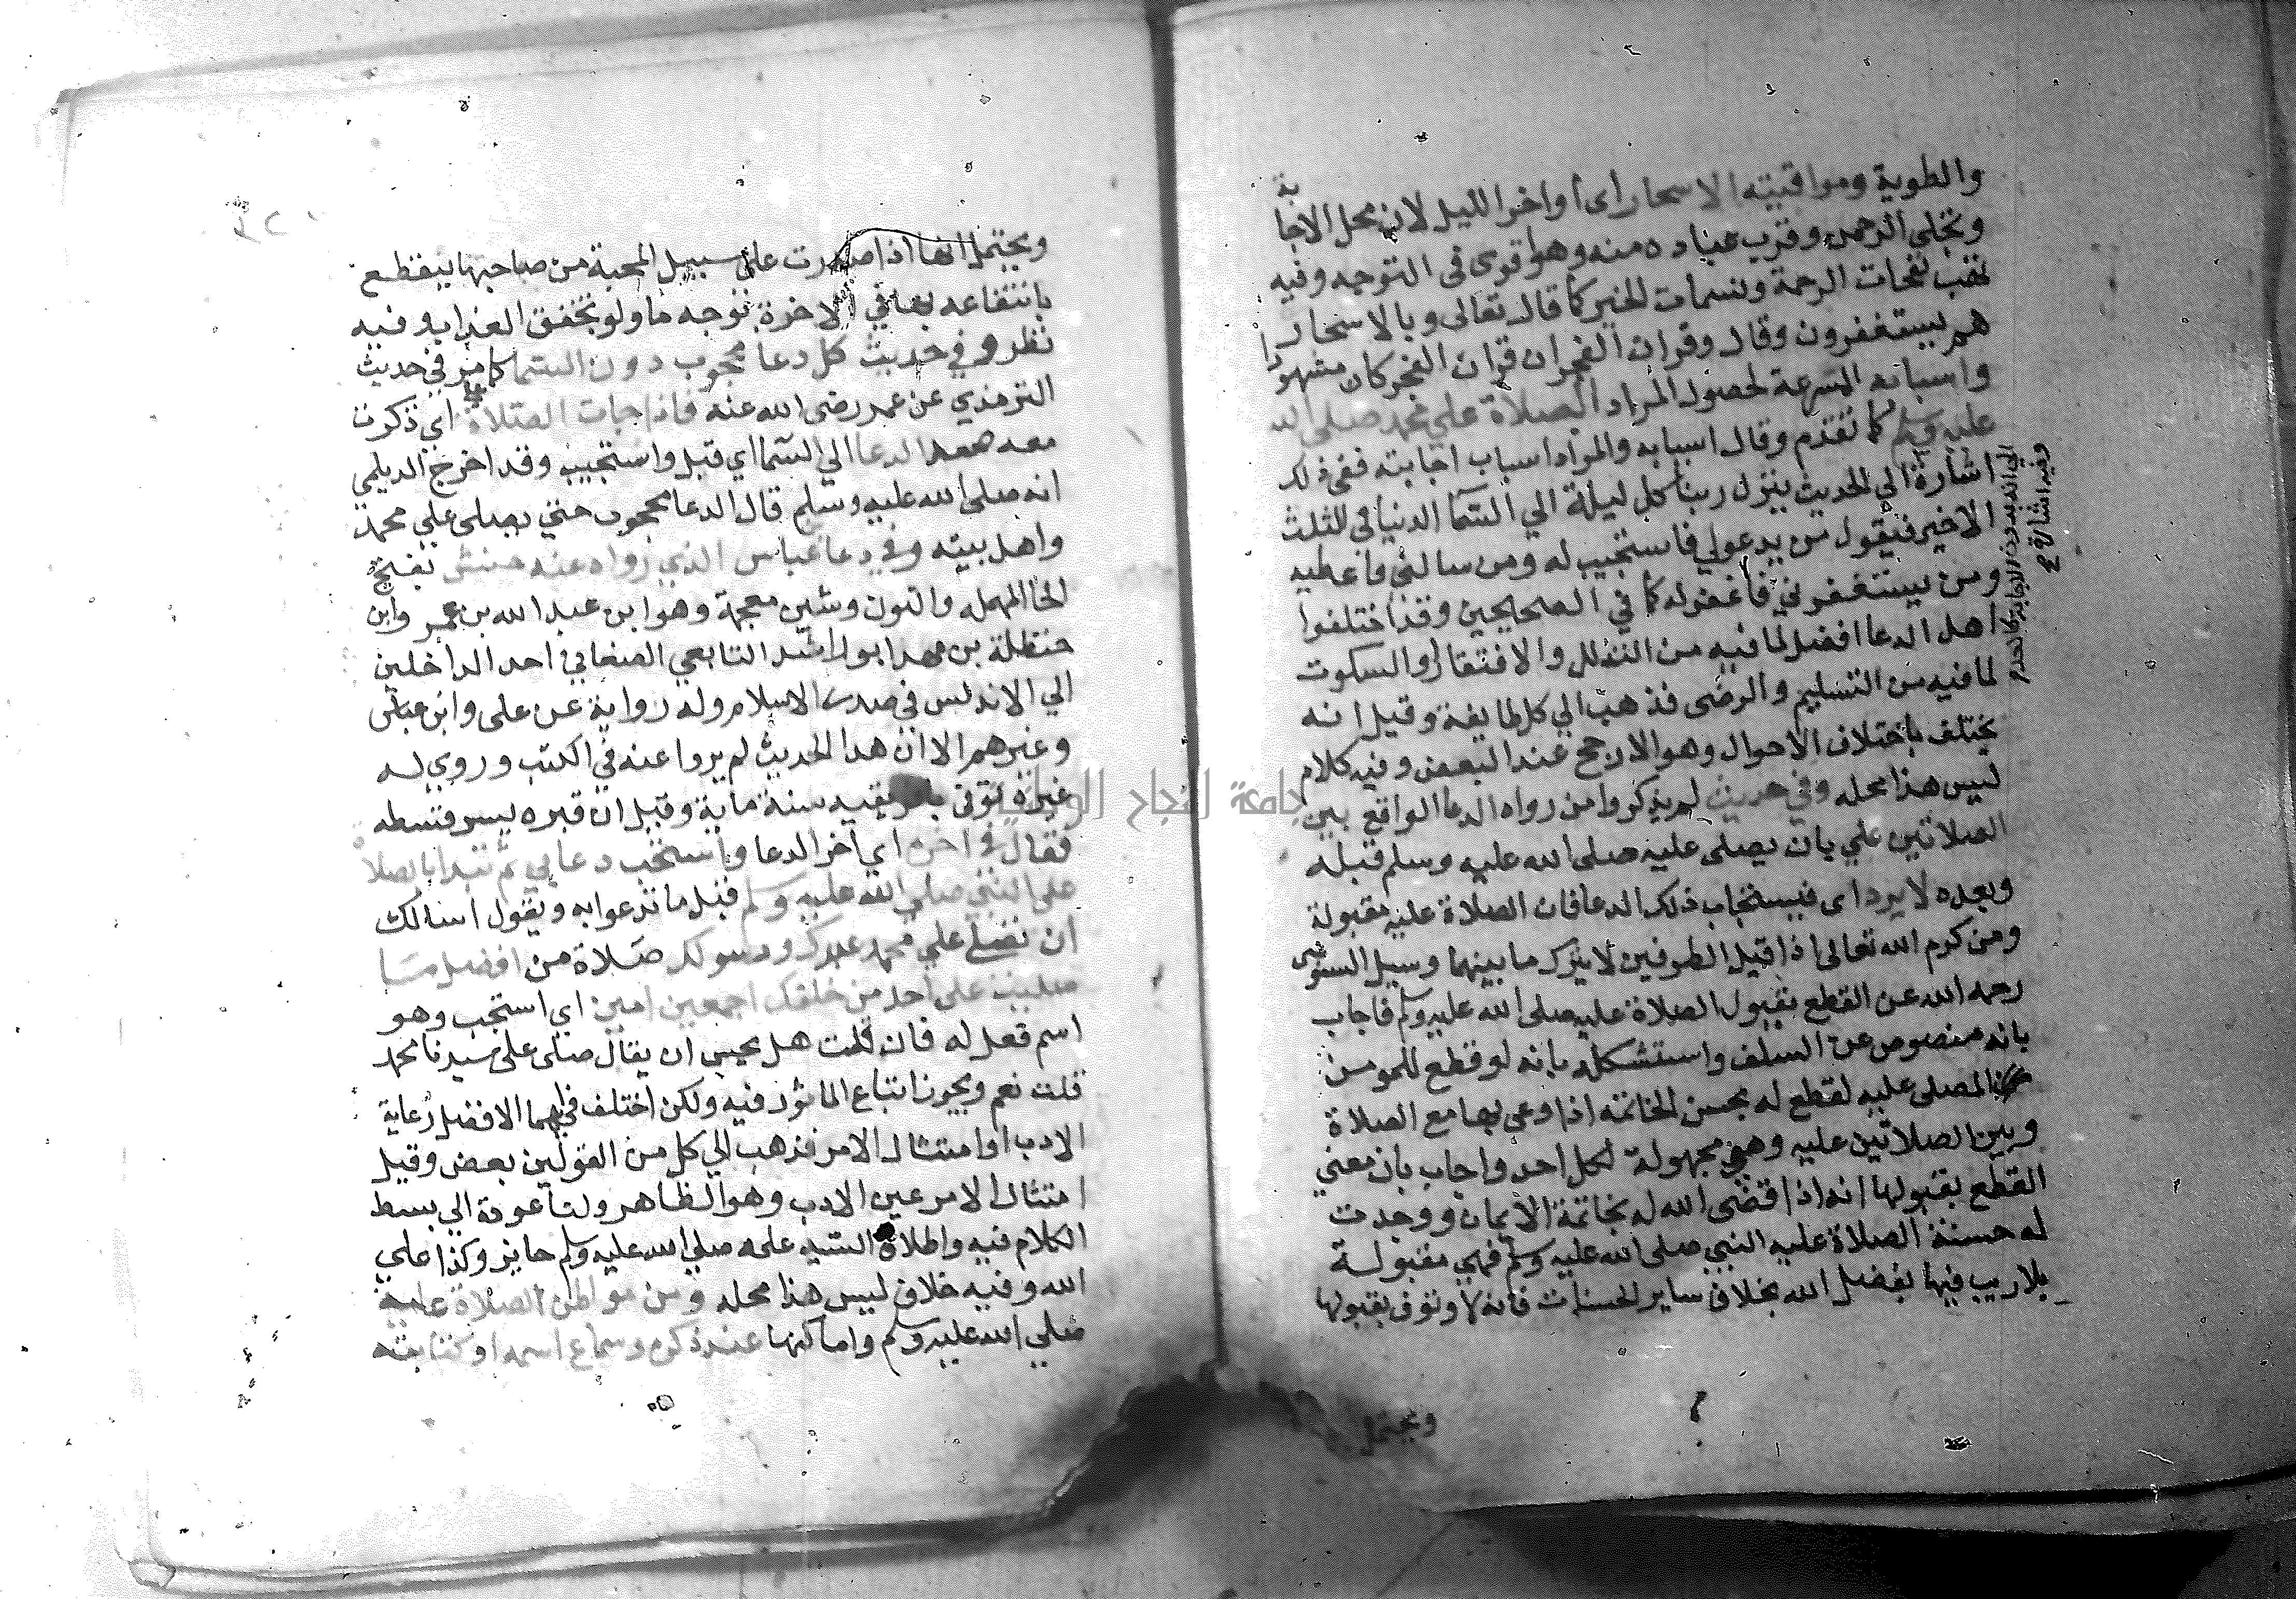 والطوية ومواقيته الاسحار اى اواخر الليل لانه محل الاجابة
وتجلي الرحمن وقرب عباده منه وهو اقوى فى التوجه وفيه
تهب نفحات الرحمة ونسمات الخير كما قال تعالى وبالاسحار
هم يستغفرون وقال وقران الفجر ان قران الفجر كان مشهودا
واسبابه المسرعة لحصول المراد الصلاة على محمد صلى الله
عليه وسلم كما تقدم وقال اسبابه والمراد اسباب اجابته ففى ذلك
اشارة الي الحديث ينزل ربنا كل ليلة الي السما الدنيا فى الثلث
الاخير فيقول من يدعوني فاستجيب له ومن سالني فاعطيه
ومن يستغفرني فاغفر له كما في الصحيحين وقد اختلفوا
اهل الدعا افضل لما فيه من التذلل والافتقار او السكوت
لما فيه من التسليم والرضى فذهب الي كل طايفة وقيل انه
يختلف باختلاف الاحوال وهو الارجح عند البعض وفيه كلام
ليس هذا محله وفي حديث لم يذكروا من رواه الدعا الواقع بين
الصلاتين علي بان يصلى عليه صلى الله عليه وسلم قبله
وبعده لا يرد اى فيستجاب ذلك الدعا فان الصلاة عليه مقبولة
ومن كرم الله تعالى اذا قبل الطرفين لا يترك ما بينهما وسيل السنوسى
رحمه الله عن القطع بقبول الصلاة عليه صلى الله عليه وسلم فاجاب
بانه منصوص عن السلف واستشكله بانه لو قطع للمومن
المصلى عليه لقطع له بحسن الخاتمه اذا دعي بها مع الصلاة
وبين الصلاتين عليه وهي مجهولة لكل احد واجاب بان معني
القطع بقبولها انه اذا قضى الله له بخاتمة الايمان ووجدت
له حسنة الصلاة عليه النبي صلى الله عليه وسلم فهي مقبولة
بلا ريب فيها بفضل الله بخلاف ساير الحسنات فانه لا وثوق بقبولها
ويحتمل
وفيه اشارة
ويحتمل انها اذا صدرت على سبيل المحبة من صاحبها يقطع
بانتفاعه بها في الاخرة بوجه ما ولو بتخفيف العذاب وفيه
نظر وفي حديث كل دعا محجوب دون السما كما مر في حديث
الترمذي عن عمر رضى الله عنه فاذا جات الصلاة علي اي ذكرت
معه صعد الدعا الي السما اي قبل واستجيب وقد اخرج الديلمي
انه صلى الله عليه وسلم قال الدعا محجوب حتي يصلى علي محمد
واهل بيته وفي دعا عباس الذي رواه عنه حنش بفتح
الحا المهمله والنون وشين معجمة وهو ابن عبد الله بن عمر وابن
حنظلة بن مهد ابو راشد التابعي الصنعاني احد الداخلين
الي الاندلس في صدر الاسلام وله رواية عن على وابن عباس
وغيرهم الا ان هذا الحديث لم يروا عنه في الكتب وروي له
غيره توفى سنة ماية وقيل ان قبره بسرقسطه
فقال في اخره اي اخر الدعا واستجب دعايي ثم تبدا بالصلاة
على النبي صلى الله عليه وسلم قبل ما تدعوا به وتقول اسالك
ان تصلي علي محمد عبدك ورسولك صلاة من افضل ما
صليت على احد من خلقك اجمعين امين اي استجب وهو
اسم فعل له فان قلت هل يجي ان يقال صلى على سيدنا محمد
قلت نعم ويجوز اتباع الماثور فيه ولكن اختلف فى ايهما الافضل رعاية
الادب او امتثال الامر فذهب الي كل من القولين بعض وقيل
امتثال الامر عين الادب وهو الظاهر ولنا عودة الي بسط
الكلام فيه واطلاق السيد عليه صلى الله عليه وسلم جايز وكذا علي
الله وفيه خلاف ليس هذا محله ومن مواطن الصلاة عليه
صلي الله عليه وسلم واماكنها عند ذكره وسماع اسمه او كتابته
جامعة النجاح الوطنية